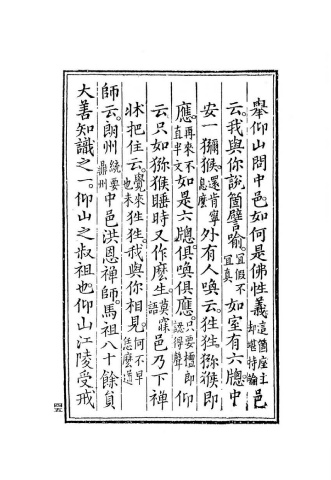 舉仰山問中邑如何是佛性義這箇座主却堪持論邑
云我與你說箇譬喻宜假不宜真如室有六牕中
安一獼猴還肯寧息麼外有人喚云狌狌獼猴即
應再來不直半文如是六牕俱喚俱應只要檀郎認得聲仰
云只如獼猴睡時又作麼生莫寐語邑乃下禪
牀把住云覺來也未狌狌我與你相見何不早恁麼道
師云朗州統要鼎州中邑洪恩禪師馬祖八十餘員
大善知識之一仰山之叔祖也仰山江陵受戒
四五